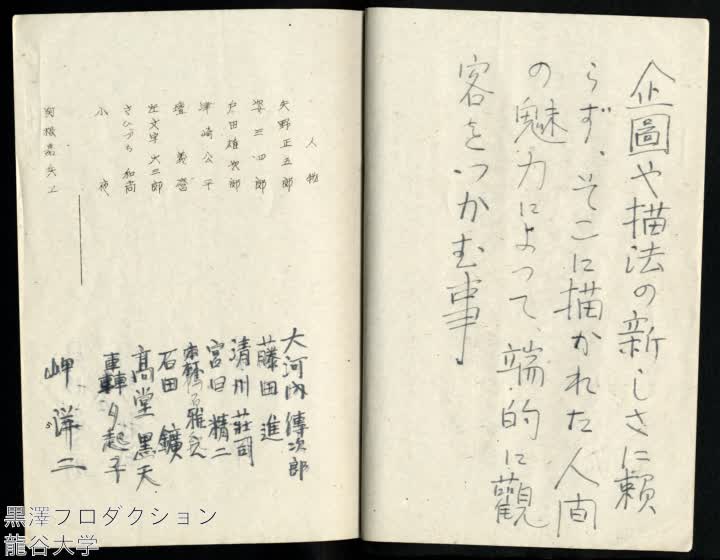 企圖や描法の新しさに頼
らず、そこに描かれた人間
の魅力によって、端的に觀
客をつかむ事
人物
矢野正五郎
姿三四郎
戸田雄次郎
津崎公平
壇義麿
左文字大三郎
さひづち和尚
小夜
大河内傳次郎
藤田進
清川莊司
宮口精二
石田鑛
高堂黒天
轟夕起子
岬洋二
黒澤プロダクション
龍谷大学